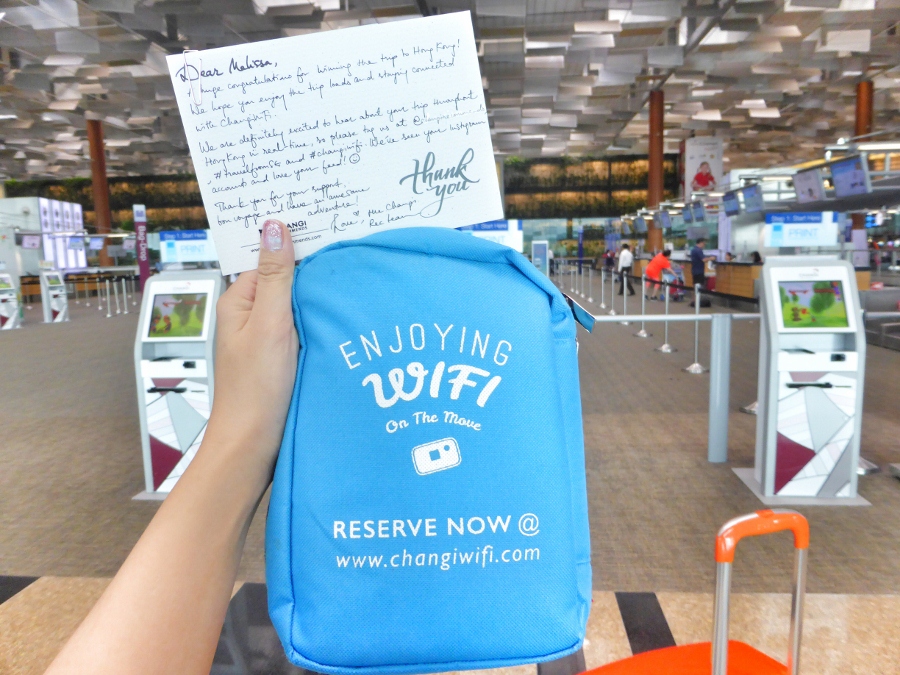 Dear Melissa,
Huge congratulations for winning the trip to Hong Kong!
We hope you enjoy the trip loads and stay connected
with Changi Wifi.
We are definitely excited to hear about your trip throughout
Hong Kong in real time, so please tag us at
and #changiwifi. We've seen your instagram
account and love your feed! ☺
Thank you for your support,
bon voyage and have an awesome
adventure!
Thank
you
ENJOYING
WIFI
On The Move
RESERVE NOW @
www.changiwifi.com
Step 1: Start Here
PRINT
Step 1: Start Here
PRINT